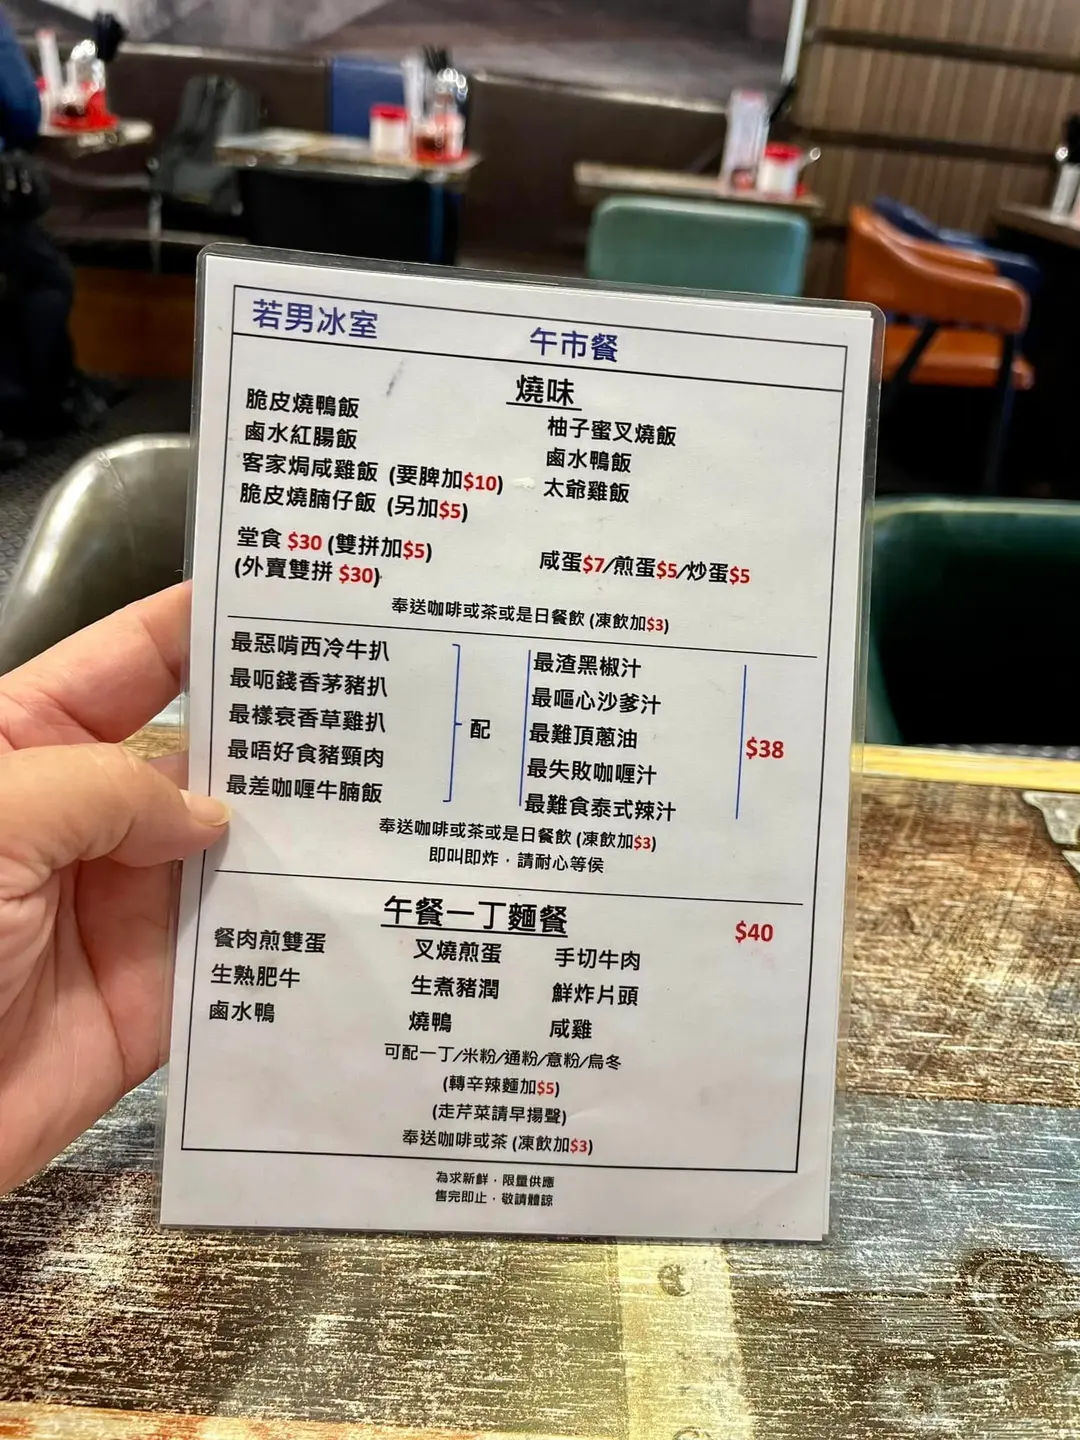 若男冰室 午市餐
燒味
脆皮燒鴨飯 柚子蜜叉燒飯
鹵水紅腸飯 鹵水鴨飯
客家焗咸雞飯 (要脾加$10) 太爺雞飯
脆皮燒腩仔飯 (另加$5)
堂食 $30 (雙拼加$5) 咸蛋$7/煎蛋$5/炒蛋$5
(外賣雙拼 $30)
奉送咖啡或茶或是日餐飲 (凍飲加$3)
最惡啃西冷牛扒 最渣黑椒汁
最呃錢香茅豬扒 最嘔心沙爹汁
最樣衰香草雞扒 配 最難頂蔥油 $38
最唔好食豬頸肉 最失敗咖喱汁
最差咖喱牛腩飯 最難食泰式辣汁
奉送咖啡或茶或是日餐飲 (凍飲加$3)
即叫即炸，請耐心等侯
午餐一丁麵餐 $40
餐肉煎雙蛋 叉燒煎蛋 手切牛肉
生熟肥牛 生煮豬潤 鮮炸片頭
鹵水鴨 燒鴨 咸雞
可配一丁/米粉/通粉/意粉/烏冬
(轉辛辣麵加$5)
(走芹菜請早揚聲)
奉送咖啡或茶 (凍飲加$3)
為求新鮮，限量供應
售完即止，敬請體諒